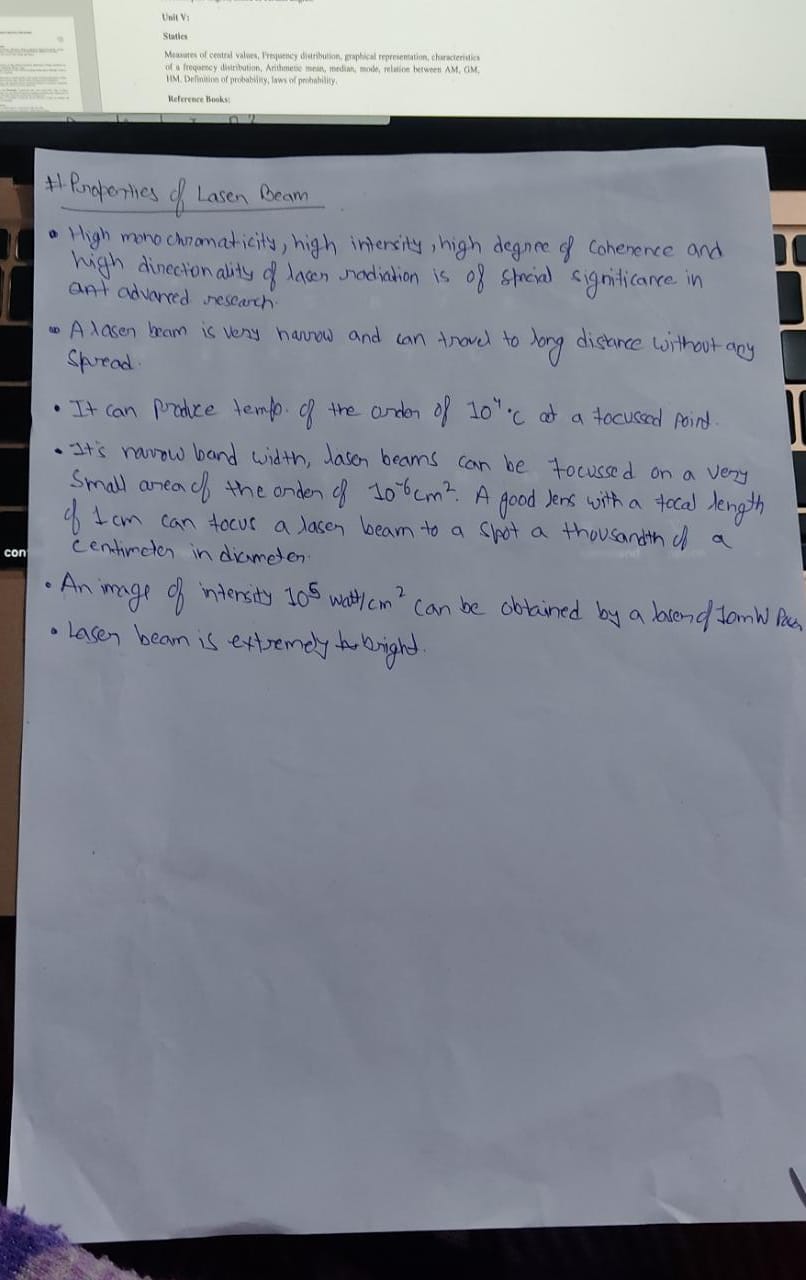 Unit V:
Statics
Measures of central values, Frequency distribution, graphical representation, characteristics
of a frequency distribution, Arithmetic mean, median, mode, relation between AM, GM,
HM. Definition of probability, laws of probability.
Reference Books:
# Properties of Laser Beam
• High monochromaticity, high intensity, high degree of coherence and
high directionality of laser radiation is of special significance in
art advanced research.
• A laser beam is very narrow and can travel to long distance without any
Spread.
• It can produce temp. of the order of 10⁴°C at a focussed point.
• It's narrow band width, laser beams can be focussed on a very
Small area of the order of 10⁻⁶cm². A good lens with a focal length
of 1cm can focus a laser beam to a spot a thousandth of a
Centimeter in diameter.
• An image of intensity 10⁵ watt/cm² can be obtained by a laser of 10mW
• Laser beam is extremely bright.
con